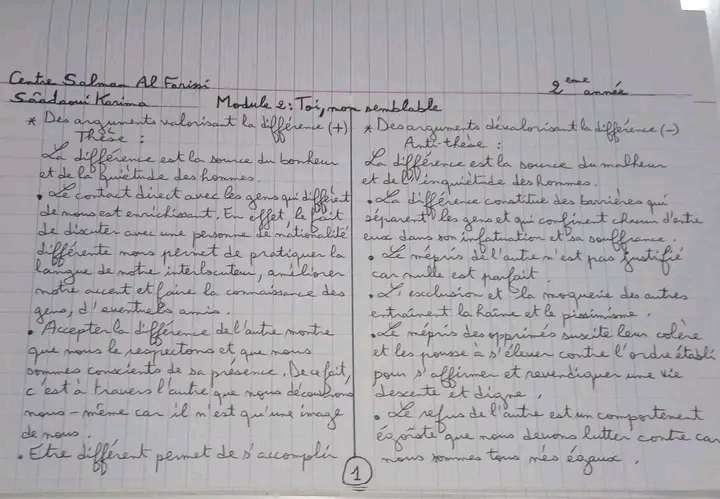 Centre Salman Al Farissi
2 eme année
Sâadaoui Karima
Module 2: Toi, mon semblable
* Des arguments valorisant la différence (+)
Thèse :
La différence est la source du bonheur
et de la quiétude des hommes.
• Le contact direct avec les gens qui diffèrent
de nous est enrichissant. En effet, le fait
de discuter avec une personne de nationalité
différente nous permet de pratiquer la
langue de notre interlocuteur, améliorer
notre accent et faire la connaissance des
gens, d'éventuels amis.
• Accepter la différence de l'autre montre
que nous le respectons et que nous
sommes conscients de sa présence. De ce fait,
c'est à travers l'autre que nous découvrons
nous-même car il n'est qu'une image
de nous.
• Etre différent permet de s'accomplir
* Des arguments dévalorisant la différence (-)
Anti-thèse :
La différence est la source du malheur
et de l'inquiétude des hommes.
• La différence constitue des barrières qui
séparent les gens et qui confinent chacun d'entre
eux dans son infatuation et sa souffrance.
• Le mépris de l'autre n'est pas justifié
car nulle est parfait.
• L'esclusion et la moquerie des autres
entraînent la haîne et le pissimisme.
• Le mépris des opprimés suscite leur colère
et les pousse à s'élever contre l'ordre établi
pour s'affirmer et revendiquer une vie
descente et digne.
• Le refus de l'autre est un comportement
égoïste que nous devons lutter contre car
nous sommes tous nés égaux.
1